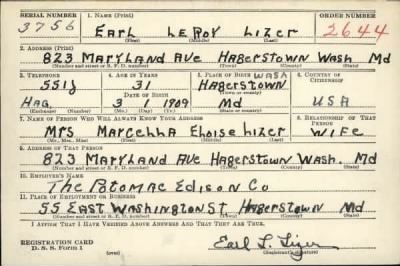 SERIAL NUMBER 1. NAME (Print) ORDER NUMBER
3756 EARL LEROY LIZER 2644
(First) (Middle) (Last)
2. ADDRESS (Print)
823 MARYLAND AVE HAGERSTOWN WASH Md
(Number and street or R. F. D. number) (Town) (County) (State)
3. TELEPHONE 4. AGE IN YEARS 5. PLACE OF BIRTH WASH 6. COUNTRY OF CITIZENSHIP
551J 31 HAGERSTOWN
DATE OF BIRTH (Town or county)
HAG. 3 1 1909 Md USA
(Exchange) (Number) (Mo.) (Day) (Yr.) (State or country)
7. NAME OF PERSON WHO WILL ALWAYS KNOW YOUR ADDRESS 8. RELATIONSHIP OF THAT PERSON
MRS MARCELLA ELOISE LIZER WIFE
(Mr., Mrs., Miss) (First) (Middle) (Last)
9. ADDRESS OF THAT PERSON
823 MARYLAND AVE HAGERSTOWN WASH. Md
(Number and street or R. F. D. number) (Town) (County) (State)
10. EMPLOYER'S NAME
The POTOMAC EDISON CO
11. PLACE OF EMPLOYMENT OR BUSINESS
55 EAST WASHINGTON ST HAGERSTOWN Md
(Number and street or R. F. D. number) (Town) (County) (State)
I AFFIRM THAT I HAVE VERIFIED ABOVE ANSWERS AND THAT THEY ARE TRUE.
REGISTRATION CARD
D. S. S. Form 1 (over) Earl L. Lizer
(Registrant's signature)